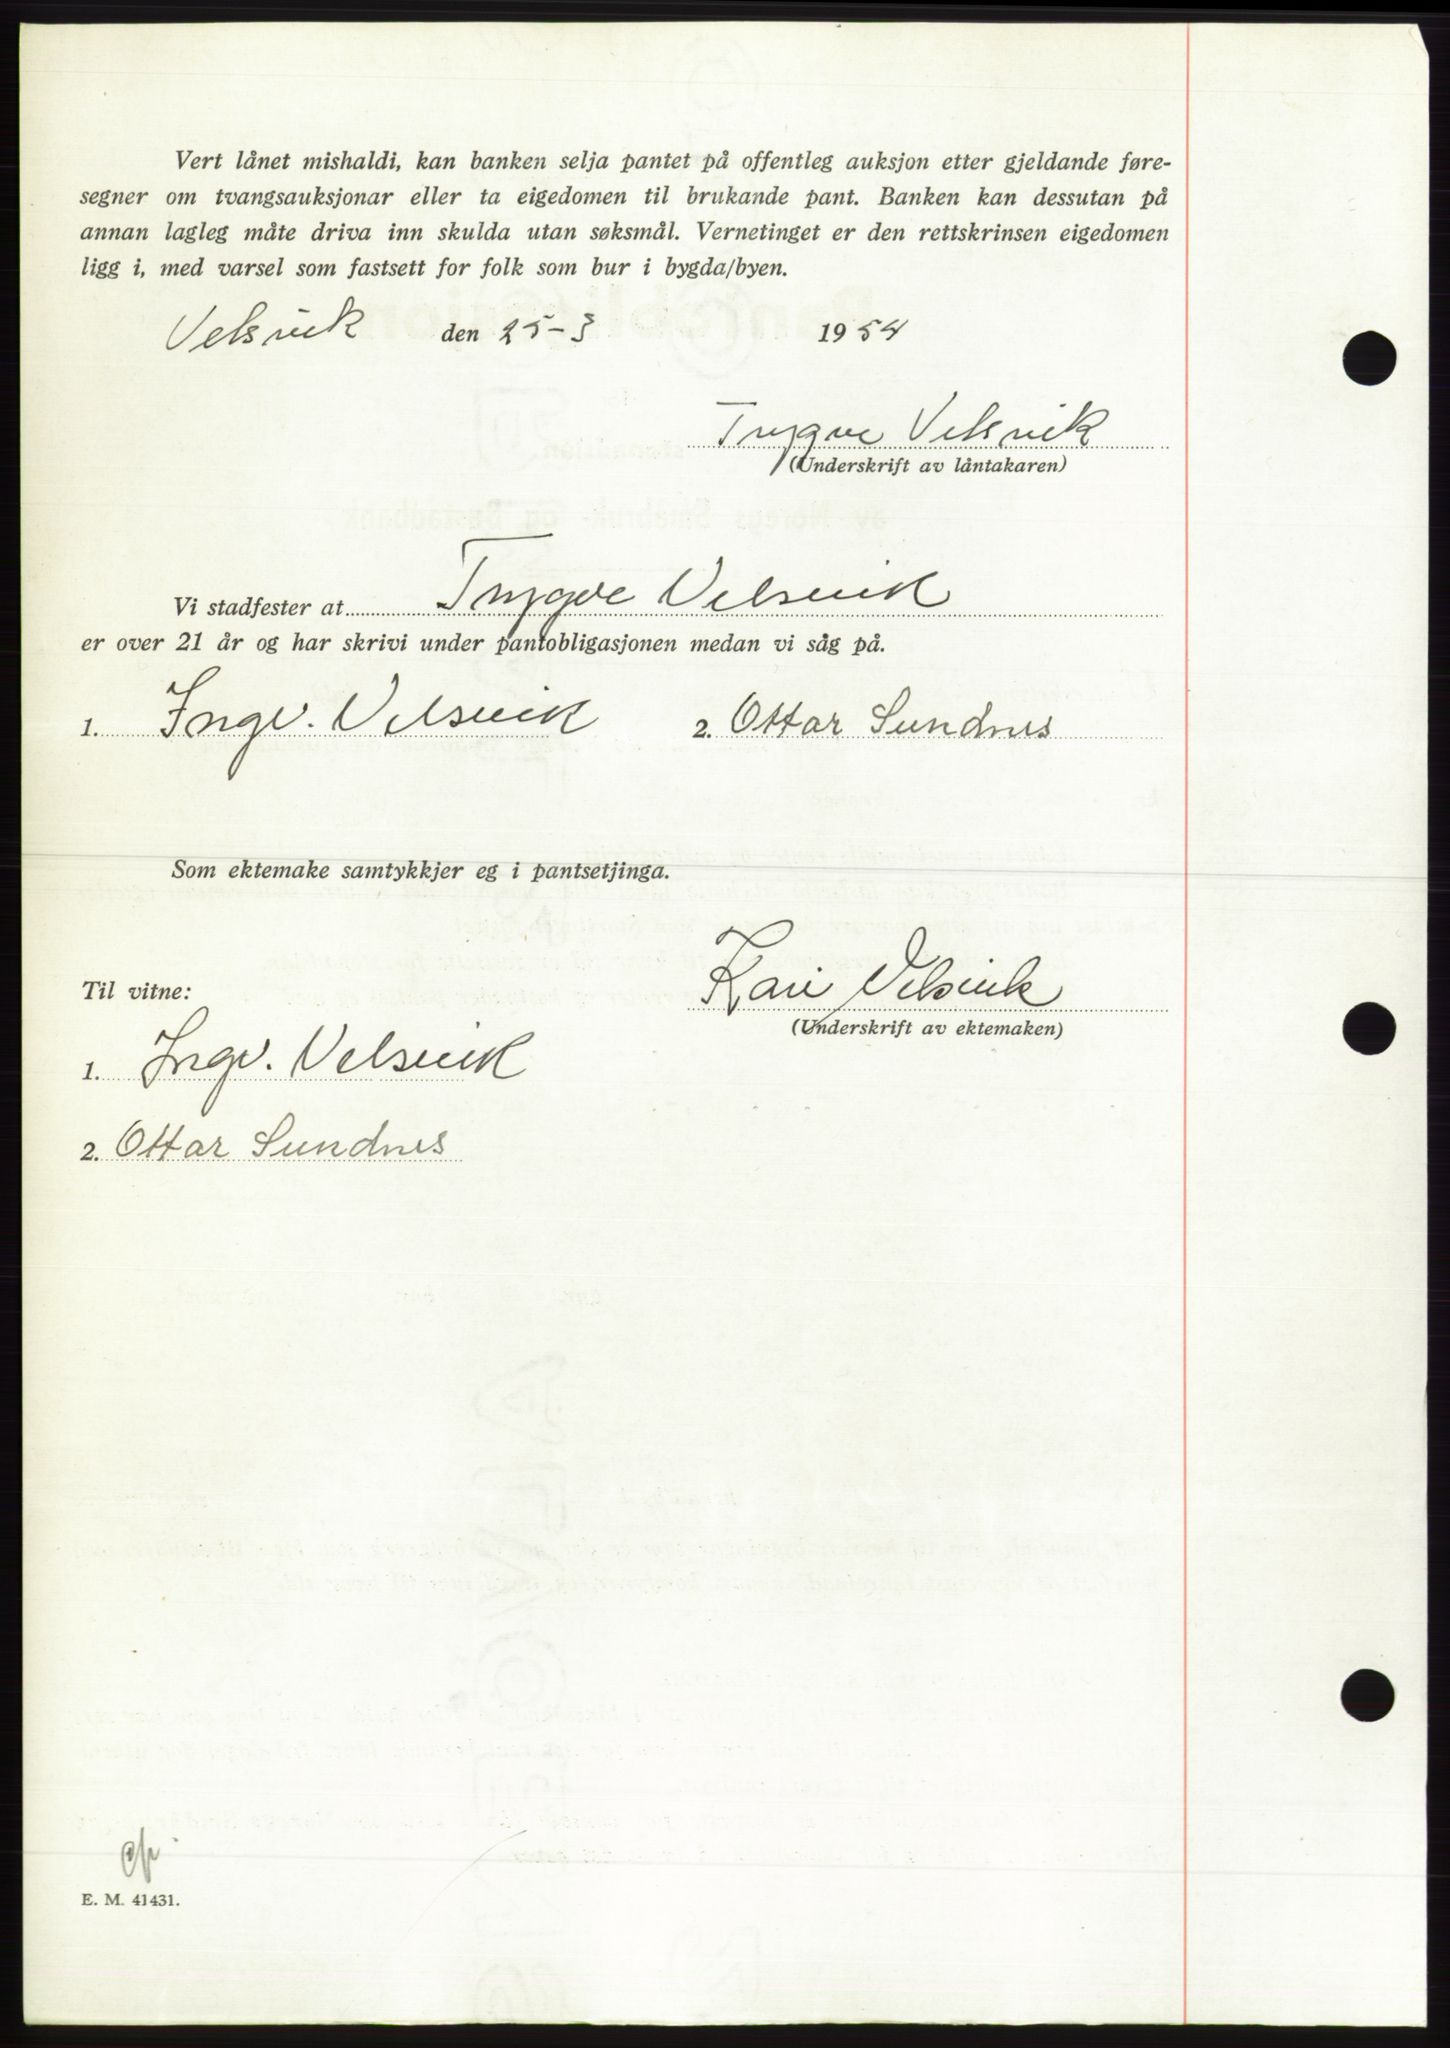 Vert lånet mishaldi, kan banken selja pantet på offentleg auksjon etter gjeldande føre-
segner om tvangsauksjonar eller ta eigedomen til brukande pant. Banken kan dessutan på
annan lagleg måte driva inn skulda utan søksmål. Vernetinget er den rettskrinsen eigedomen
ligg i, med varsel som fastsett for folk som bur i bygda/byen.
Velsvik den 25-3 1954
Trygve Velsvik
(Underskrift av låntakaren)
Vi stadfester at Trygve Velsvik
er over 21 år og har skrivi under pantobligasjonen medan vi såg på.
1. Ingv. Velsvik 2. Ottar Sundnes
Som ektemake samtykkjer eg i pantsetjinga.
Kari Velsvik
Til vitne:
(Underskrift av ektemaken)
1. Ingv. Velsvik
2. Ottar Sundnes
E. M. 41431.